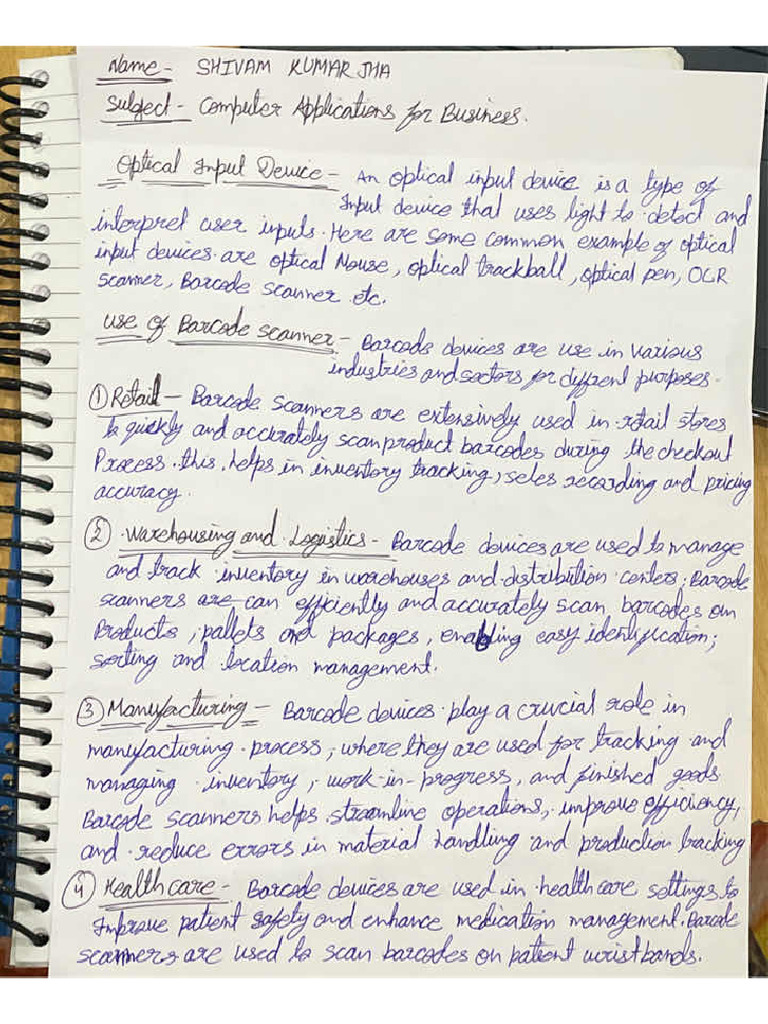 Name - SHIVAM KUMAR JHA
Subject - Computer Applications for Business.
Optical Input Device - An optical input device is a type of
Input device that uses light to detect and
interpret user inputs. Here are some common example of optical
input devices are optical Mouse, optical trackball, optical pen, OCR
scanner, Barcode scanner etc.
use of Barcode scanner - Barcode devices are use in various
industries and sectors for diffrent purposes.
① Retail - Barcode scanners are extensively used in retail stores
to quickly and accurately scan product barcodes during the checkout
Process. this helps in inventory tracking, seles recording and pricing
accuracy.
② Warehousing and Logistics - Barcode devices are used to manage
and track inventory in warehouses and distribution centers. Barcode
scanners are can efficiently and accurately scan barcodes on
Products, pallets and packages, enabling easy identification,
sorting and location management.
③ Manufacturing - Barcode devices play a crucial role in
manufacturing process, where they are used for tracking and
managing inventory, work-in-progress, and finished goods
Barcode scanners helps streamline operations, improve efficiency,
and reduce errors in material handling and production tracking
④ Healthcare - Barcode devices are used in healthcare settings to
Improve patient safety and enhance medication management. Barcode
scanners are used to scan barcodes on patient wristbands.